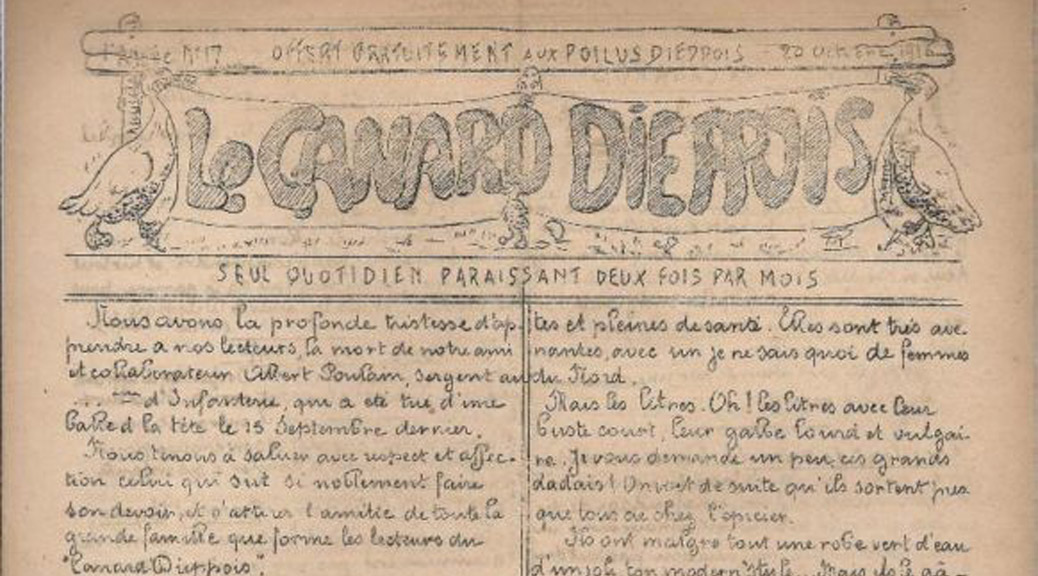 Année N°17 OFFERT GRATUITEMENT AUX POILUS DIEPPOIS 20
Le CANARD DIEPPOIS
SEUL QUOTIDIEN PARAISSANT DEUX FOIS PAR MOIS
Nous avons la profonde tristesse d'ap-
prendre a nos lecteurs, la mort de notre ami
et collaborateur Albert Poulain, sergent au
d'Infanterie, qui a été tué d'une
balle à la tête le 15 Septembre dernier.
Nous tenons à saluer avec respect et affec-
tion celui qui sut si noblement faire
son devoir, et s'attirer l'amitié de toute la
grande famille que forme les lecteurs du
"Canard Dieppois".
tes et pleines de santé. Elles sont très ave-
nantes, avec un je ne sais quoi de femmes
du Nord.
Mais les litres. Oh! les litres avec leur
buste court, leur galbe lourd et vulgai-
re. Je vous demande un peu, ces grands
dadais! On voit de suite qu'ils sortent pres
que tous de chez l'épicier.
Ils ont malgré tout une robe vert d'eau
d'un joli ton modern'style. Mais